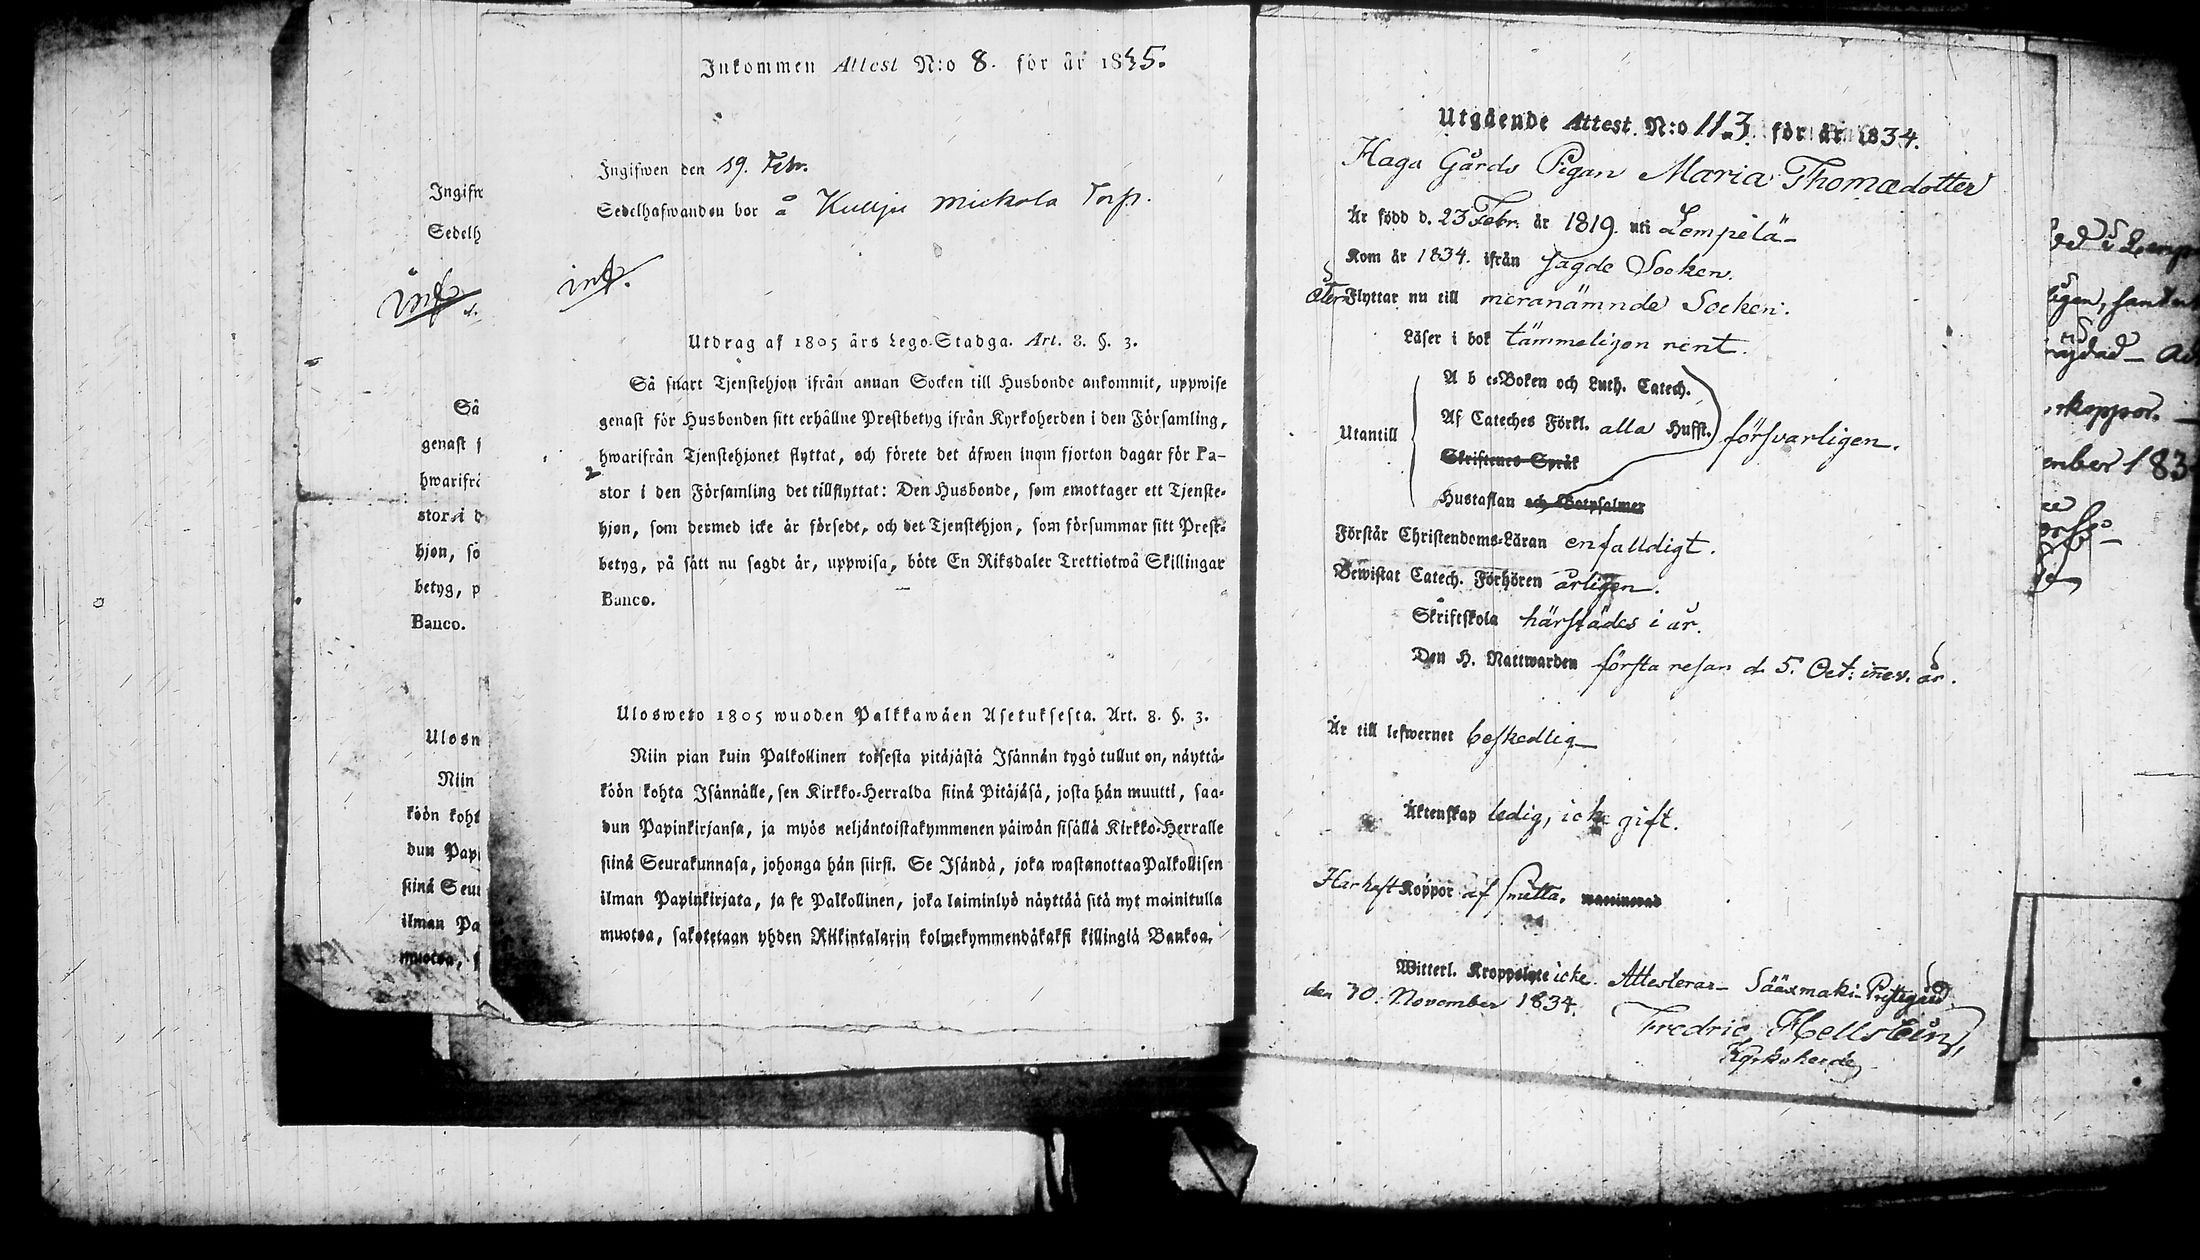 Inkommen Attest N:o 8. för år 1835.
Ingifwen den 19. Febr.
Sedelhafwanden bor å Kulju Mickola Torp.
inf.
Utdrag af 1805 års Lego-Stadga. Art. 8. §. 3.
Så snart Tjenstehjon ifrån annan Socken till Husbonde ankommit, uppwise
genast för Husbonden sitt erhållne Prestbetyg ifrån Kyrkoherden i den Församling,
hwarifrån Tjenstehjonet flyttat, och förete det äfwen inom fjorton dagar för Pa-
stor i den Församling det tillflyttat: Den Husbonde, som emottager ett Tjenste-
hjon, som dermed icke är försedt, och det Tjenstehjon, som försummar sitt Prest-
betyg, på sätt nu sagdt är, uppwisa, böte En Riksdaler Trettiotwå Skillingar
Banco.
Ulosweto 1805 wuoden Palkkawäen Asetuksesta. Art. 8. §. 3.
Niin pian kuin Palkollinen toisesta pitäjästä Isännän tygö tullut on, näyttä-
köön kohta Isännälle, sen Kirkko-Herralda siinä Pitäjäsä, josta hän muutti, saa-
dun Papinkirjansa, ja myös neljäntoistakymmenen päiwän sisällä Kirkko-Herralle
siinä Seurakunnasa, johonga hän siirsi. Se Isändä, joka wastanottaa Palkollisen
ilman Papinkirjata, ja se Palkollinen, joka laiminlyö näyttää sitä nyt mainitulla
muotoa, sakotetaan yhden Riikintalarin kolmekymmendäkaksi killingiä Bankoa.
Ingifw
Sedelh
inf.
Så
genast f
hwarifrå
stor i d
hjon, so
betyg, p
Banco.
Ulosw
Niin
köön koht
dun Papi
siinä Seur
ilman Pa
muotoa, s
Utgående Attest. N:o 113. för år 1834.
Haga Gårds Pigan Maria Thomædotter
Är född d. 23 Febr. år 1819. uti Lempelä
Kom år 1834. ifrån sagde Socken.
åter Flyttar nu till meranämnde Socken.
Läser i bok tämmeligen rent.
A b c-Boken och Luth. Catech.
Utantill Af Cateches Förkl. alla Hufst. försvarligen.
Skriftenes Språk
Hustaflan och Botpsalmer
Förstår Christendoms-Läran enfalldigt.
Bewistat Catech. Förhören årligen.
Skriftskola härstädes i år.
Den H. Nattwarden första resan d. 5. Oct: innev. år.
Är till lefwernet beskedlig
Äktenskap ledig, icke gift.
Har haft Koppor af smitta. waccinerad
Witterl. Kroppslyte icke. Attesterar Sääxmäki Prestegård
den 30. November 1834.
Fredric Hellstein,
Kyrkoherde
koppor.
ember 183